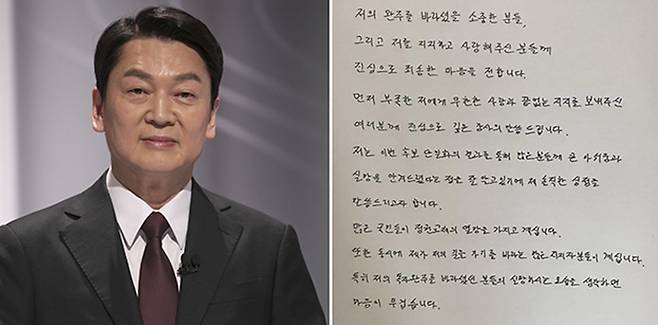 저의 완주를 바라셨을 소중한 분들,
그리고 저를 지지하고 사랑해주신 분들께
진심으로 죄송한 마음을 전합니다.
먼저 부족한 저에게 무한한 사랑과 끝없는 지지를 보내주신
여러분께 진심으로 깊은 감사의 말씀 드립니다.
저는 이번 후보 단일화의 결과를 통해 많은분들께 큰 아쉬움과
실망을 안겨드렸다는 점을 잘 알고있기에 제 솔직한 심정을
말씀드리고자 합니다.
많은 국민들이 정권교체의 열망을 가지고 계십니다.
또한 동시에 제가 저의 길을 가기를 바라는 많은 지지자분들이 계십니다.
특히 저의 독자완주를 바라셨던 분들의 실망하시는 모습을 생각하면
마음이 무겁습니다.